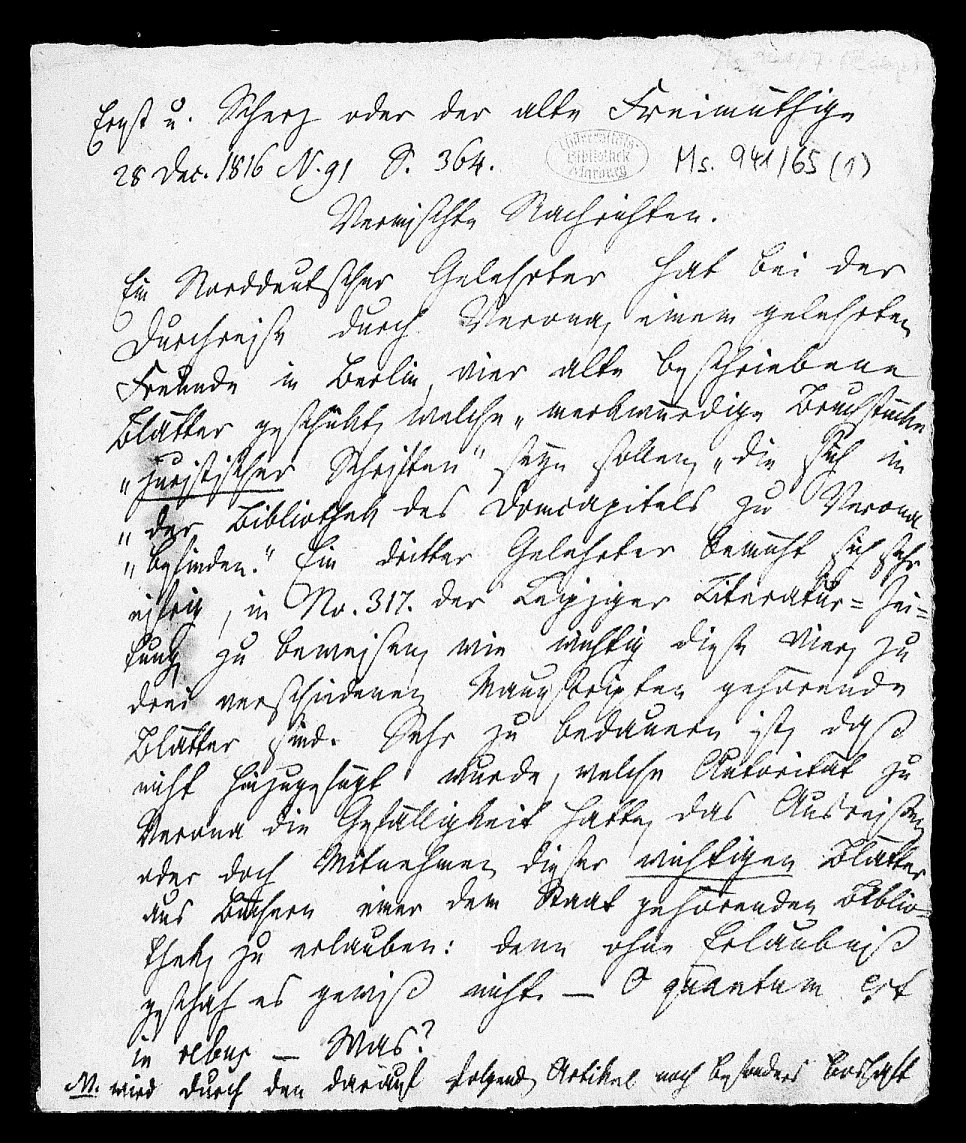 Ernst u. Scherz oder der alte Freimüthige
28 Dec. 1816 N. 91 S. 364.
Universitäts
Bibliothek
Marburg
Ms. 941/65 (1)
Vermischte Nachrichten.
Ein Norddeutscher Gelehrter hat bei der
Durchreise durch Verona, einem gelehrten
Freunde in Berlin, vier alte beschriebene
Blätter geschickt, welche „merkwürdige Bruchstücke
„juristischer Schriften“ seyn sollen, „die sich in
„der Bibliothek des Domcapitels zu Verona
„befinden.“ Ein dritter Gelehrter bemüht sich sehr
eifrig, in No. 317. der Leipziger Literatur=Zei=
tung zu beweisen, wie wichtig diese vier, zu
drei verschiedenen Manuscripten gehörende
Blätter sind. Sehr zu bedauern ist, daß
nicht hinzugefügt wurde, welche Autorität zu
Verona die Gefälligkeit hatte, das Ausreißen
oder doch Mitnehmen dieser wichtigen Blätter
aus Büchern einer dem Staat gehörenden Biblio=
thek, zu erlauben: denn ohne Erlaubniß
geschah es gewiß nicht. — O quantum est
in rebus — Was?
N. wird durch den darauf folgenden Artikel noch besonders boshaft